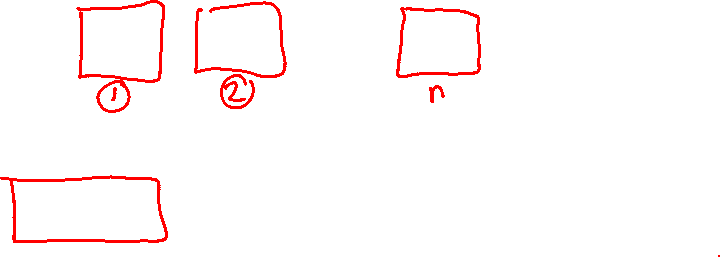 1 2 n